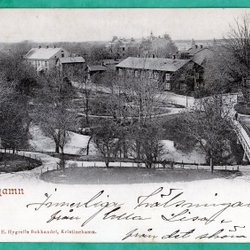 gamn
E. Hygrells Bokhandel, Kristinehamn.
Innerliga Hälsningar
från lilla Lisa,
från det